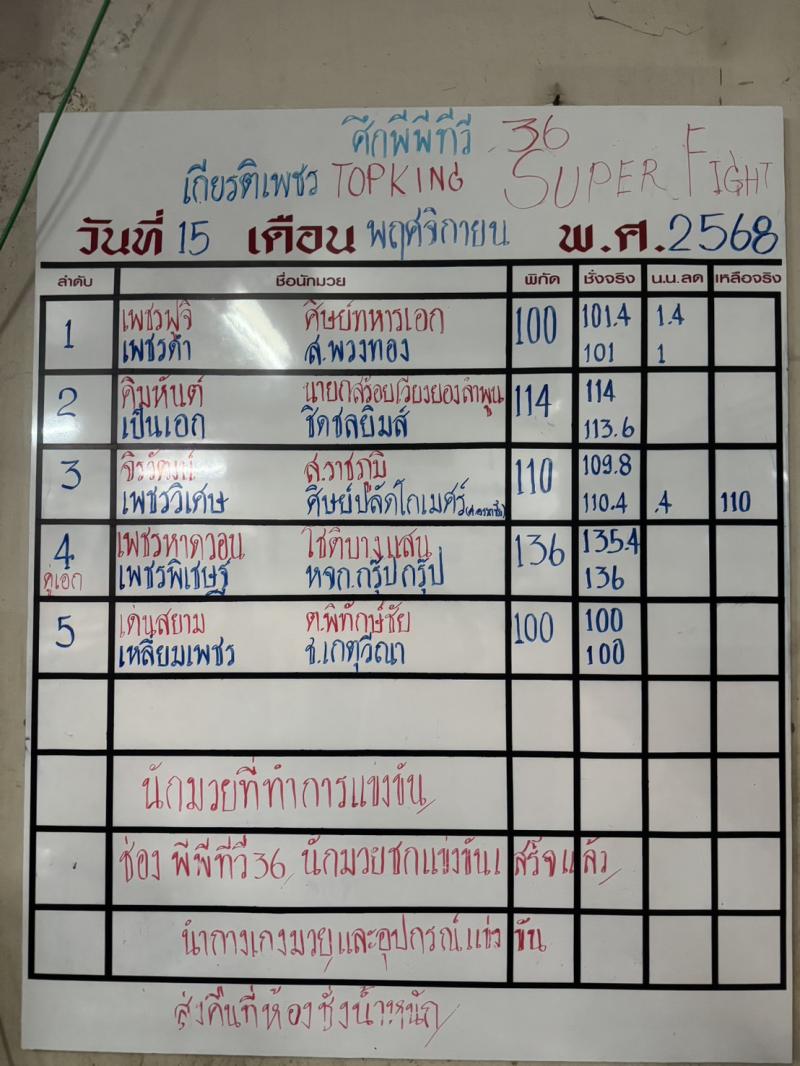 ศึกพีพีทีวี 36
เกียรติเพชร TOPKING SUPER FIGHT
วันที่ 15 เดือน พฤศจิกายน พ.ศ. 2568
ลำดับ ชื่อนักมวย พิกัด ชั่งจริง น.น.ลด เหลือจริง
1 เพชรฟูจิ ศิษย์ทหารเอก 100 101.4 1.4
เพชรดำ ส.พวงทอง 101 1
2 คิมหันต์ นายกสร้อยเวียงยองลำพูน 114 114
เป็นเอก ชิดชลยิมส์ 113.6
3 จิรวัฒน์ ส.ราชภูมิ 110 109.8
เพชรวิเศษ ศิษย์ปลัดโกเมศร์ 110.4 .4 110
4 เพชรหาดวอน โชติบางแสน 136 135.4
คู่เอก เพชรพิเชษฐ์ หจก.กรุ๊ปกรุ๊ป 136
5 เด่นสยาม ต.พิทักษ์ชัย 100 100
เหลี่ยมเพชร ช.เกตุวีณา 100
นักมวยที่ทำการแข่งขัน
ช่อง พีพีทีวี 36 นักมวยชกแข่งขันเสร็จแล้ว
นำกางเกงมวยและอุปกรณ์แข่งขัน
ส่งคืนที่ห้องชั่งน้ำหนัก